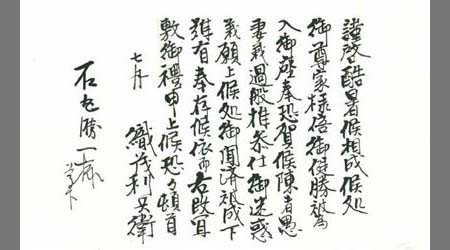 謹啓酷暑候相成候処
御尊家様倍御健勝被為
入御座奉恐賀候陳者愚
妻義過般推参仕御迷惑
義願上候処御聞済被成下
難有奉存候依而右宜
敷御禮申上候恐々頓首
七月 織茂利兵衛
石丸勝一様